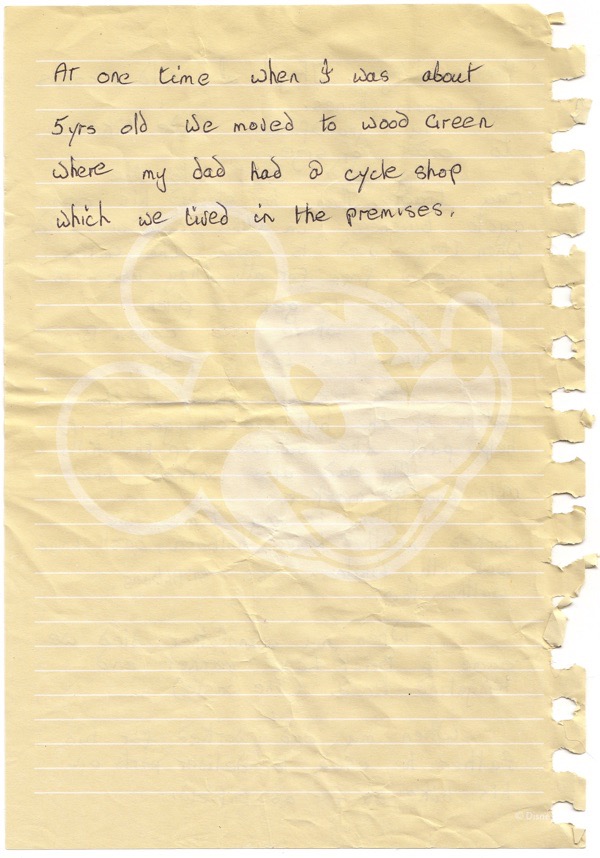 At one time when I was about
5yrs old we moved to wood Green
where my dad had a cycle shop
which we lived in the premises.
© Disney